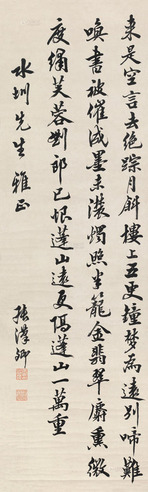 來是空言去絕踪月斜樓上五更鐘夢為遠別啼難
喚書被催成墨未濃燭照半籠金翡翠麝熏微
度繡芙蓉劉郎已恨蓬山遠更隔蓬山一萬重
水圳先生雅正
張漢卿